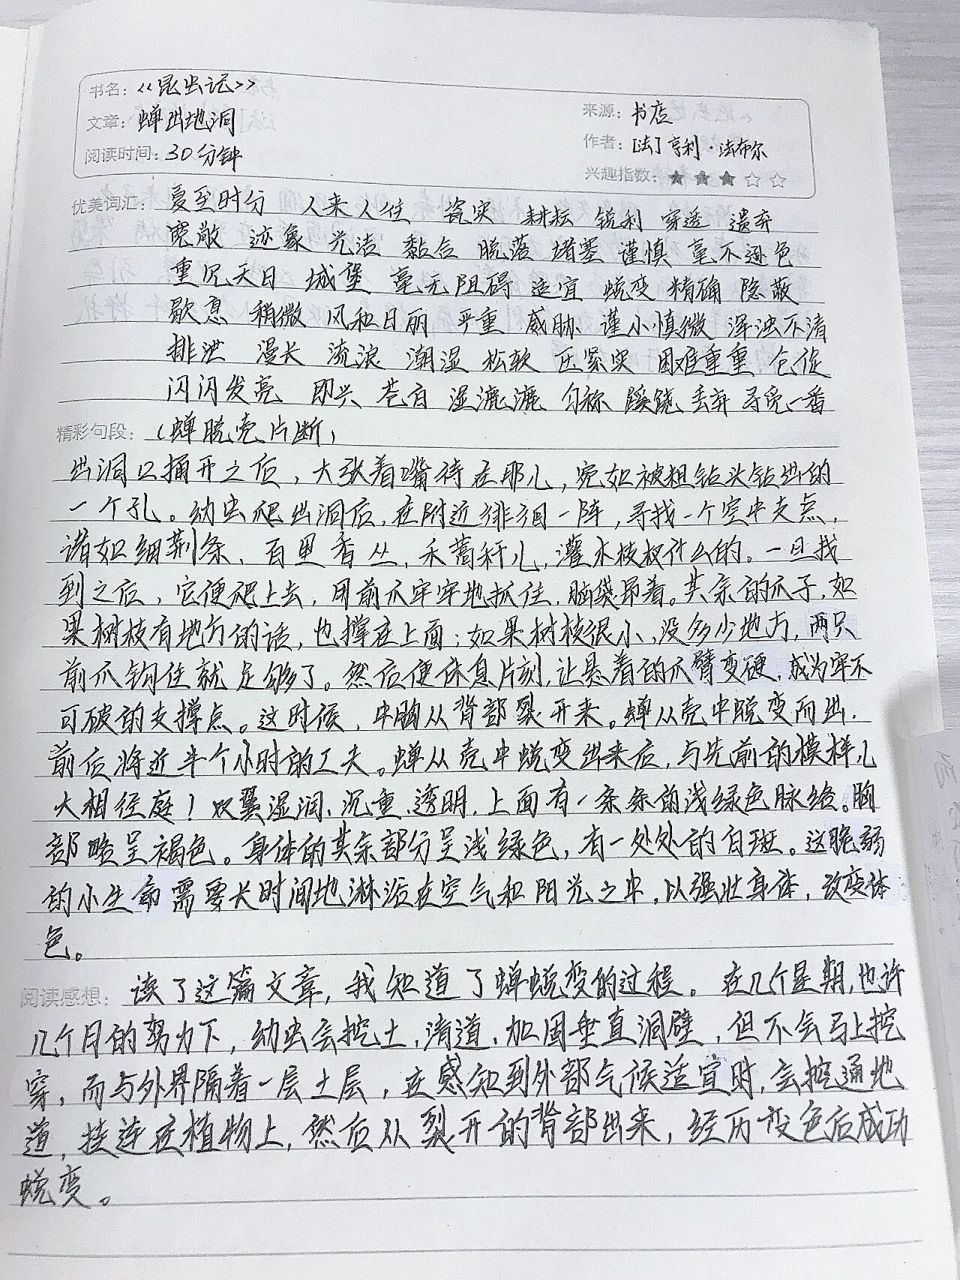 书名：《昆虫记》
文章：蝉出地洞
阅读时间：30分钟
来源：书店
作者：[法]亨利·法布尔
兴趣指数：★★★☆☆
优美词汇：夏至时分 人来人往 瓷实 耕耘 锐利 穿透 遗弃
宽敞 迹象 光洁 黏合 脱落 堵塞 谨慎 毫不逊色
重见天日 城堡 毫无阻碍 适宜 蜕变 精确 隐蔽
歇息 稍微 风和日丽 严重 威胁 谨小慎微 浑浊不清
排泄 漫长 流浪 潮湿 松软 压紧实 困难重重 仓促
闪闪发亮 即兴 苍白 湿漉漉 匀称 蹊跷 丢弃 寻觅一番
精彩句段：（蝉脱壳片断）
出洞口捅开之后，大张着嘴待在那儿，宛如被粗钻头钻出的
一个孔。幼虫爬出洞后，在附近徘徊一阵，寻找一个空中支点，
诸如细荆条、百里香丛、禾蒿秆儿、灌木枝杈什么的。一旦找
到之后，它便爬上去，用前爪牢牢地抓住，脑袋昂着。其余的爪子，如
果树枝有地方的话，也撑在上面；如果树枝很小，没多少地方，两只
前爪钩住就足够了。然后便休息片刻，让悬着的爪臂变硬，成为牢不
可破的支撑点。这时候，中胸从背部裂开来。蝉从壳中蜕变而出，
前后将近半个小时的工夫。蝉从壳中蜕变出来后，与先前的模样儿
大相径庭！双翼湿润、沉重、透明，上面有一条条的浅绿色脉络。胸
部略呈褐色。身体的其余部分呈浅绿色，有一处处的白斑。这脆弱
的小生命需要长时间地沐浴在空气和阳光之中，以强壮身体，改变体
色。
阅读感想：读了这篇文章，我知道了蝉蜕变的过程。在几个星期，也许
几个月的努力下，幼虫会挖土，清道，加固垂直洞壁，但不会马上挖
穿，而与外界隔着一层土层，在感知到外部气候适宜时，会挖通地
道，挂连在植物上，然后从裂开的背部出来，经历变色后成功
蜕变。